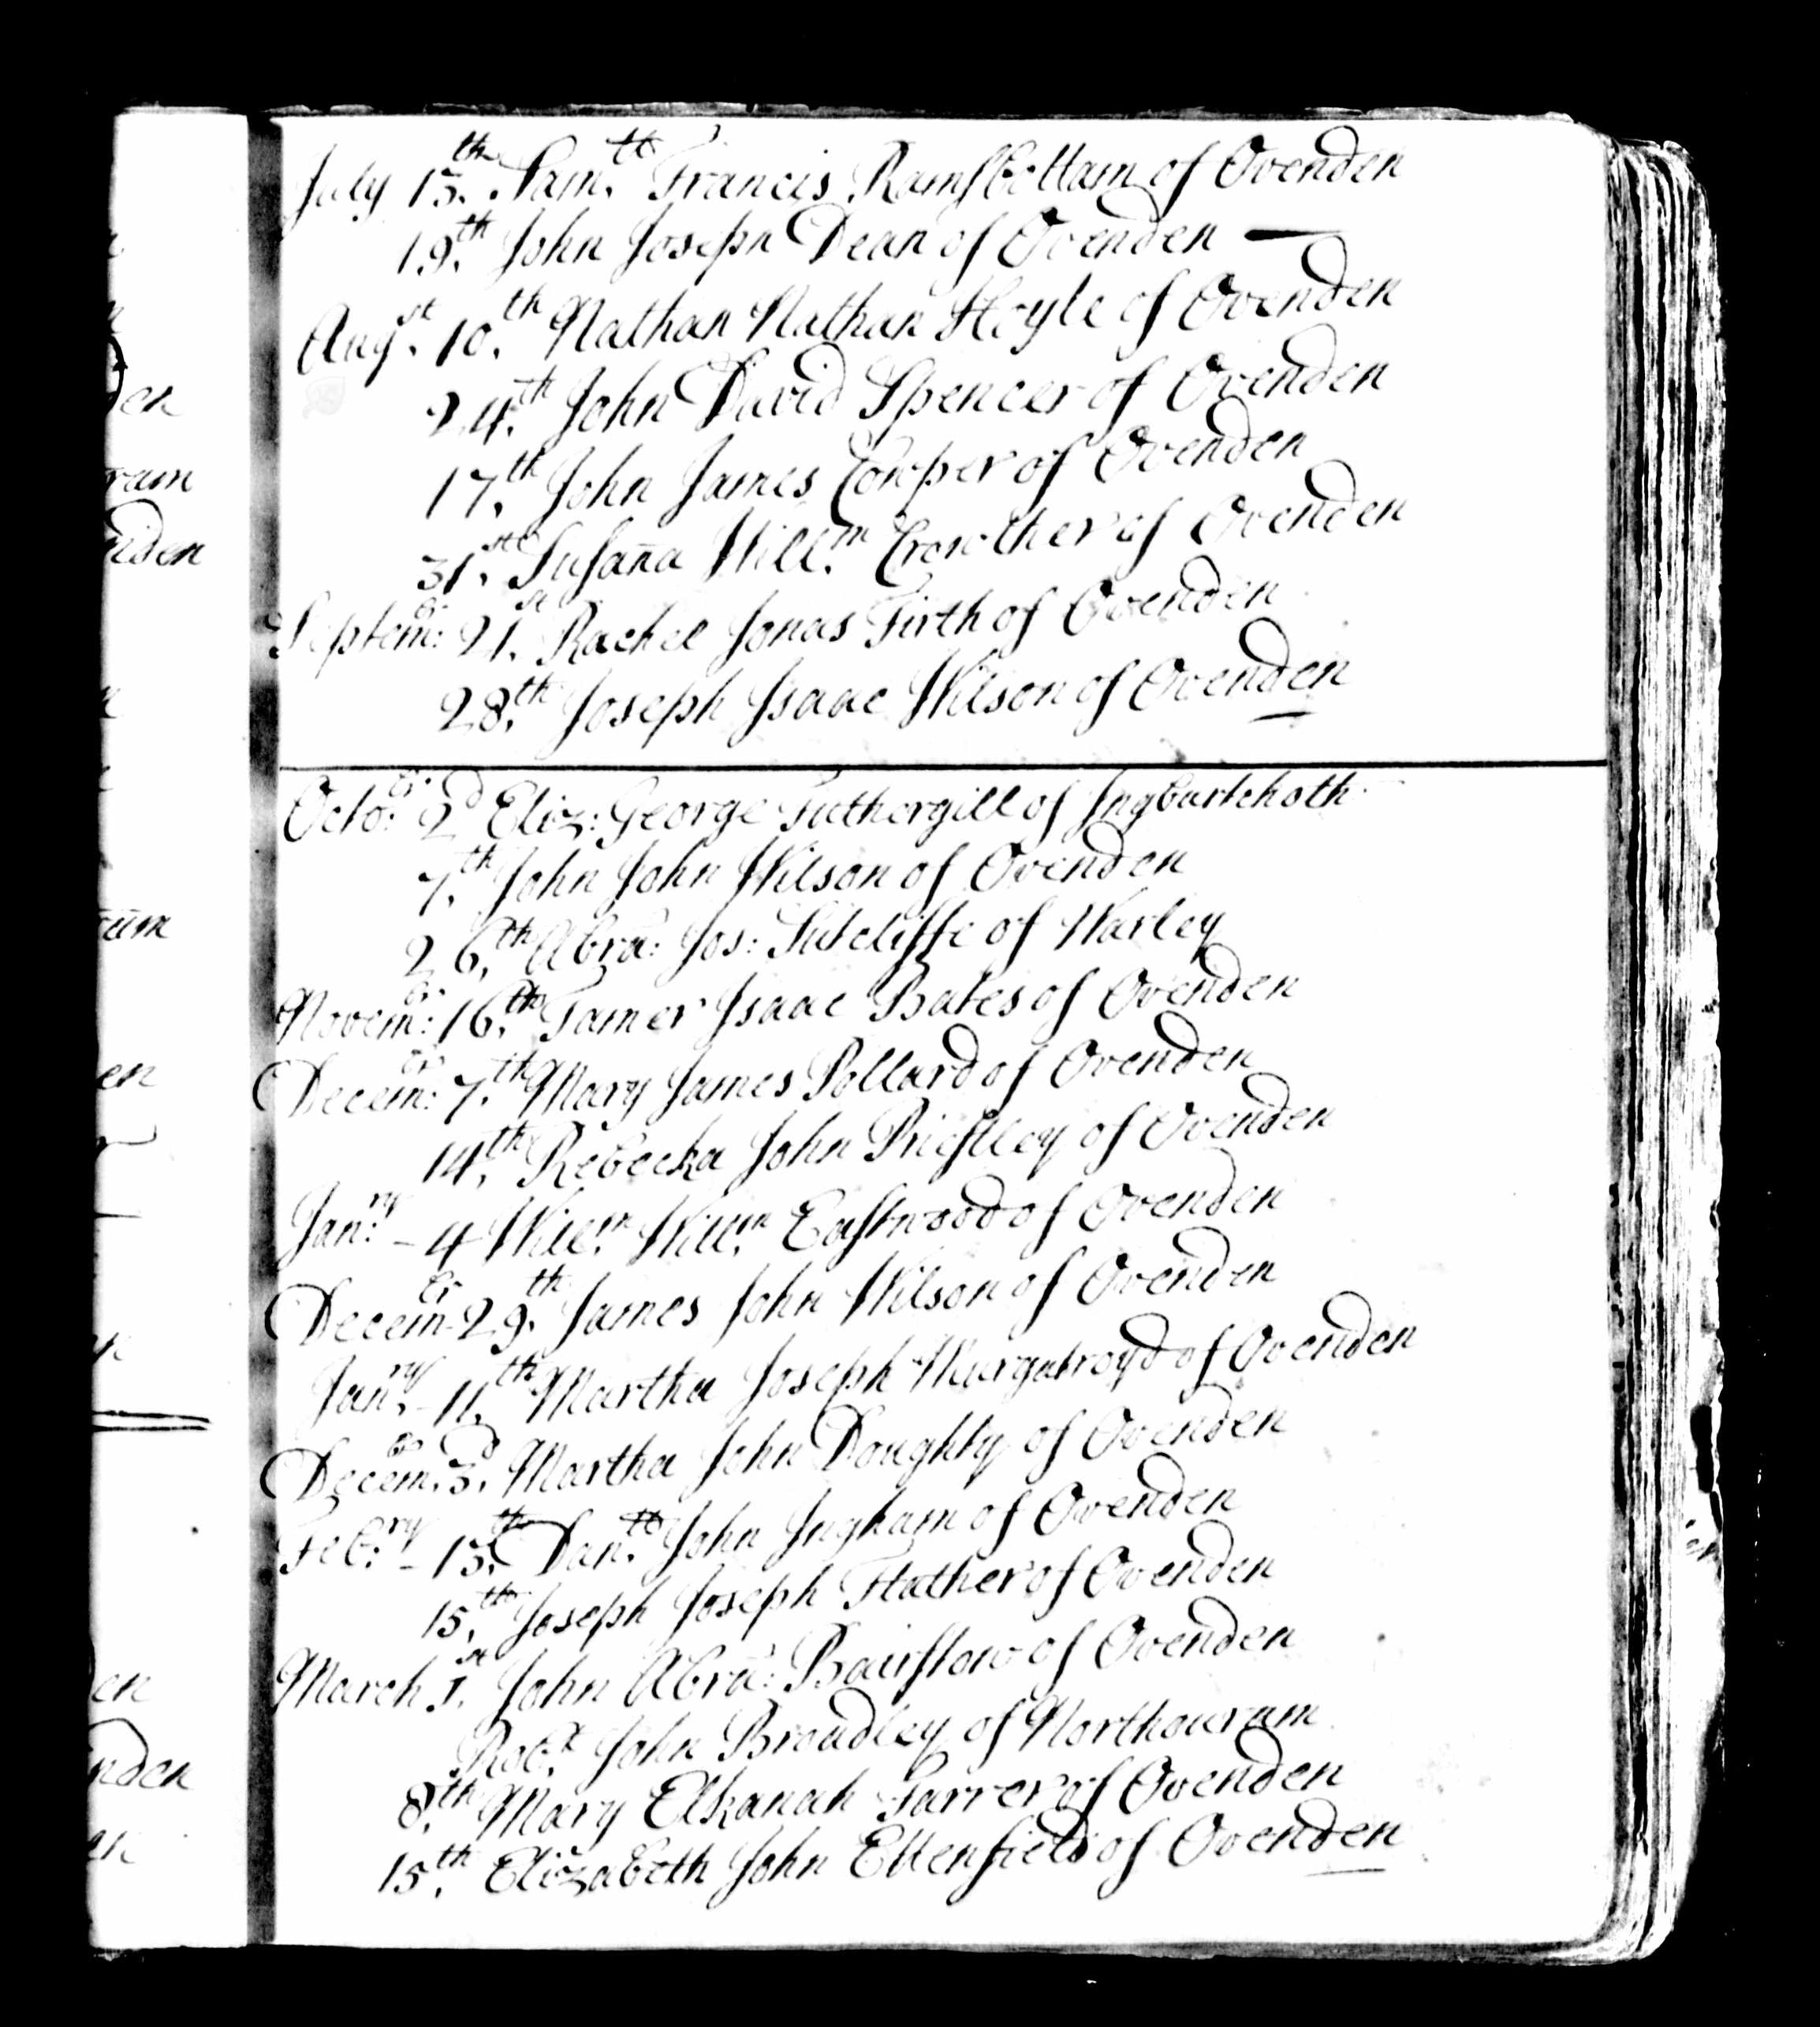 July 13.th Sam.ll Francis Ramsbottam of Ovenden
19.th John Joseph Dean of Ovenden —
Aug.st 10.th Nathan Nathan Hoyle of Ovenden
24.th John David Spencer of Ovenden
17.th John James Cowper of Ovenden
31.st Susaña Will.m Crowther of Ovenden
Septem:br 21.st Rachel Jonas Firth of Ovenden
28.th Joseph Isaac Wilson of Ovenden
Octo:br 2d Eliz: George Futhergill of
7.th John John Wilson of Ovenden
26.th Abrã: Jos: Sutcliffe of Warley
Novem:br 16.th Tamer Isaac Bates of Ovenden
Decem:br 7.th Mary James Pollard of Ovenden
14.th Rebecka John Priestley of Ovenden
Jan:ry - 4 Will.m Will.m Eastwood of Ovenden
Decem.br 29.th James John Wilson of Ovenden
Jan.ry - 11.th Martha Joseph Murgatroyd of Ovenden
Decem.br 3.d Martha John Doughty of Ovenden
Feb:ry - 13.th Dan.ll John Ingham of Ovenden
15.th Joseph Joseph Flather of Ovenden
March 1.st John Abrã: Bairstow of Ovenden
Rob.t John Broadley of Northouram
8.th Mary Elkanah Farrer of Ovenden
15.th Elizabeth John Ettenfield of Ovenden